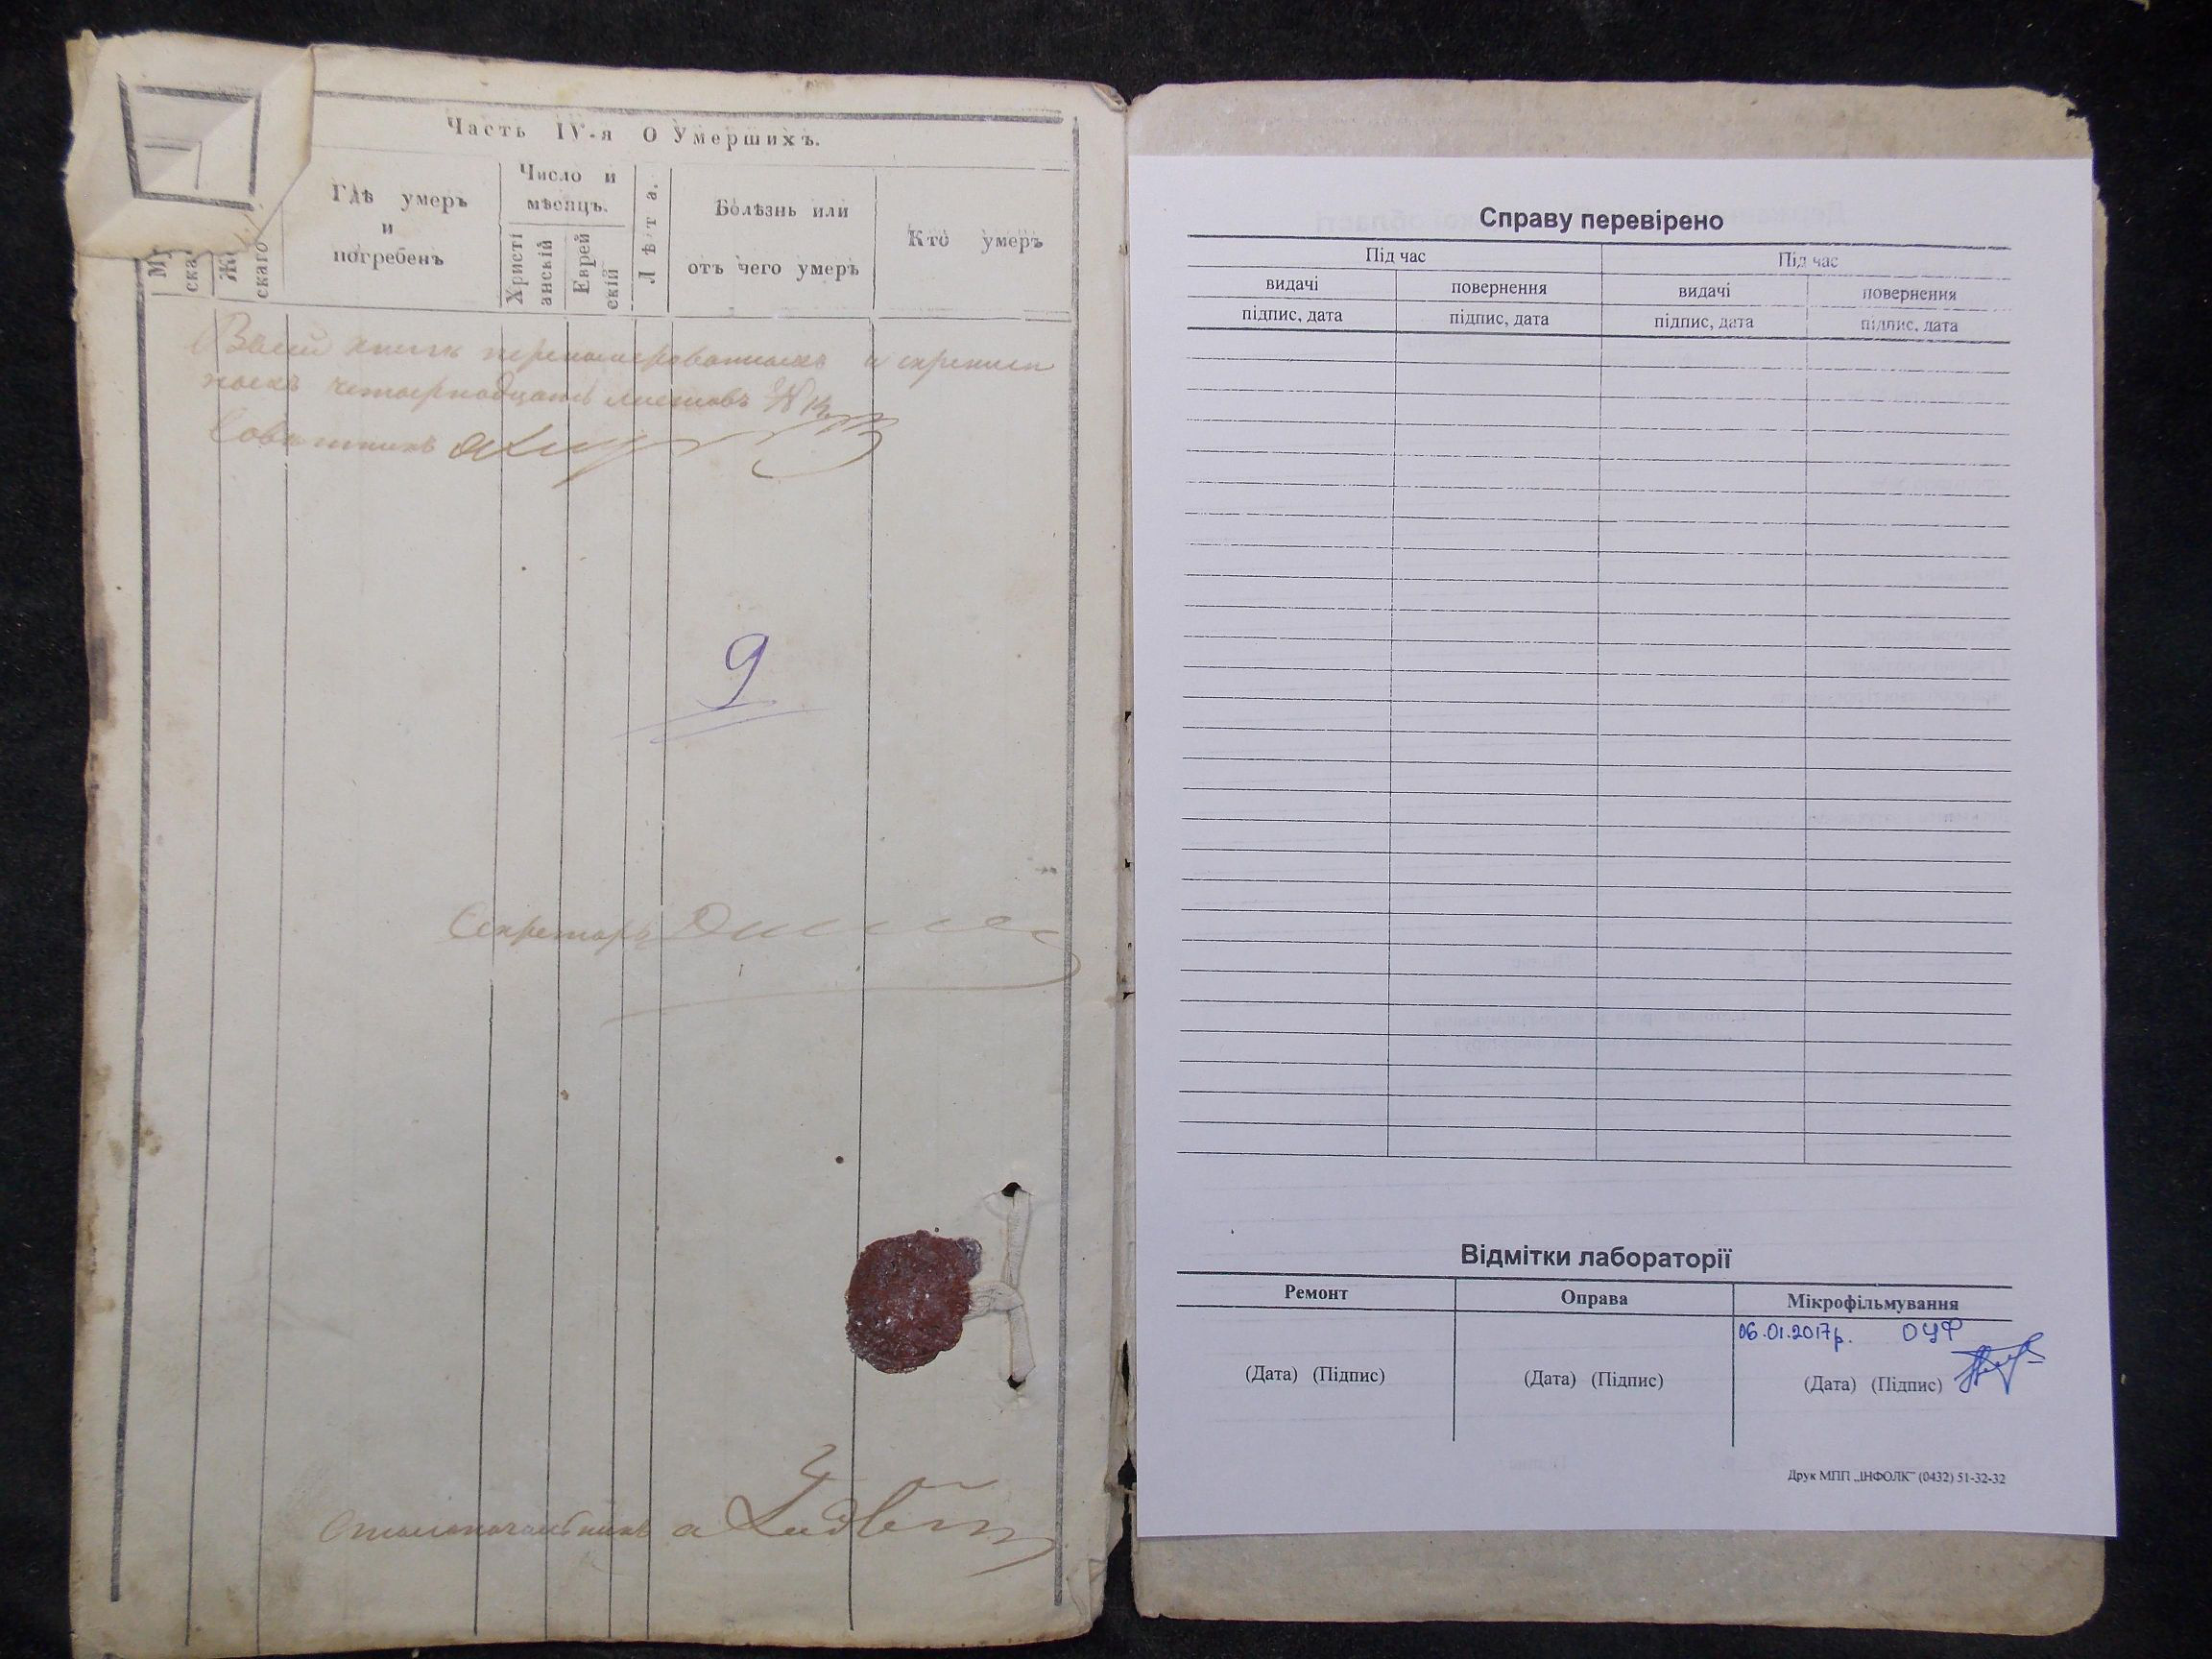 Часть IV-я О Умершихъ.
Гдѣ умеръ
и
погребенъ
Число и
мѣсяцъ.
Христі
анскій
Еврей
скій
Лѣта.
Болѣзнь или
отъ чего умеръ
Кто умеръ
Му
ска
Же
скаго
четырнадцать листовъ
Совѣтникъ
9
Секретарь
Столоначальникъ
Справу перевірено
Під час
Під час
видачі
повернення
видачі
повернення
підпис, дата
підпис, дата
підпис, дата
підпис, дата
Відмітки лабораторії
Ремонт
Оправа
Мікрофільмування
06.01.2017р. ОЦФ
(Дата) (Підпис)
(Дата) (Підпис)
(Дата) (Підпис)
Друк МПП „ІНФОЛК" (0432) 51-32-32